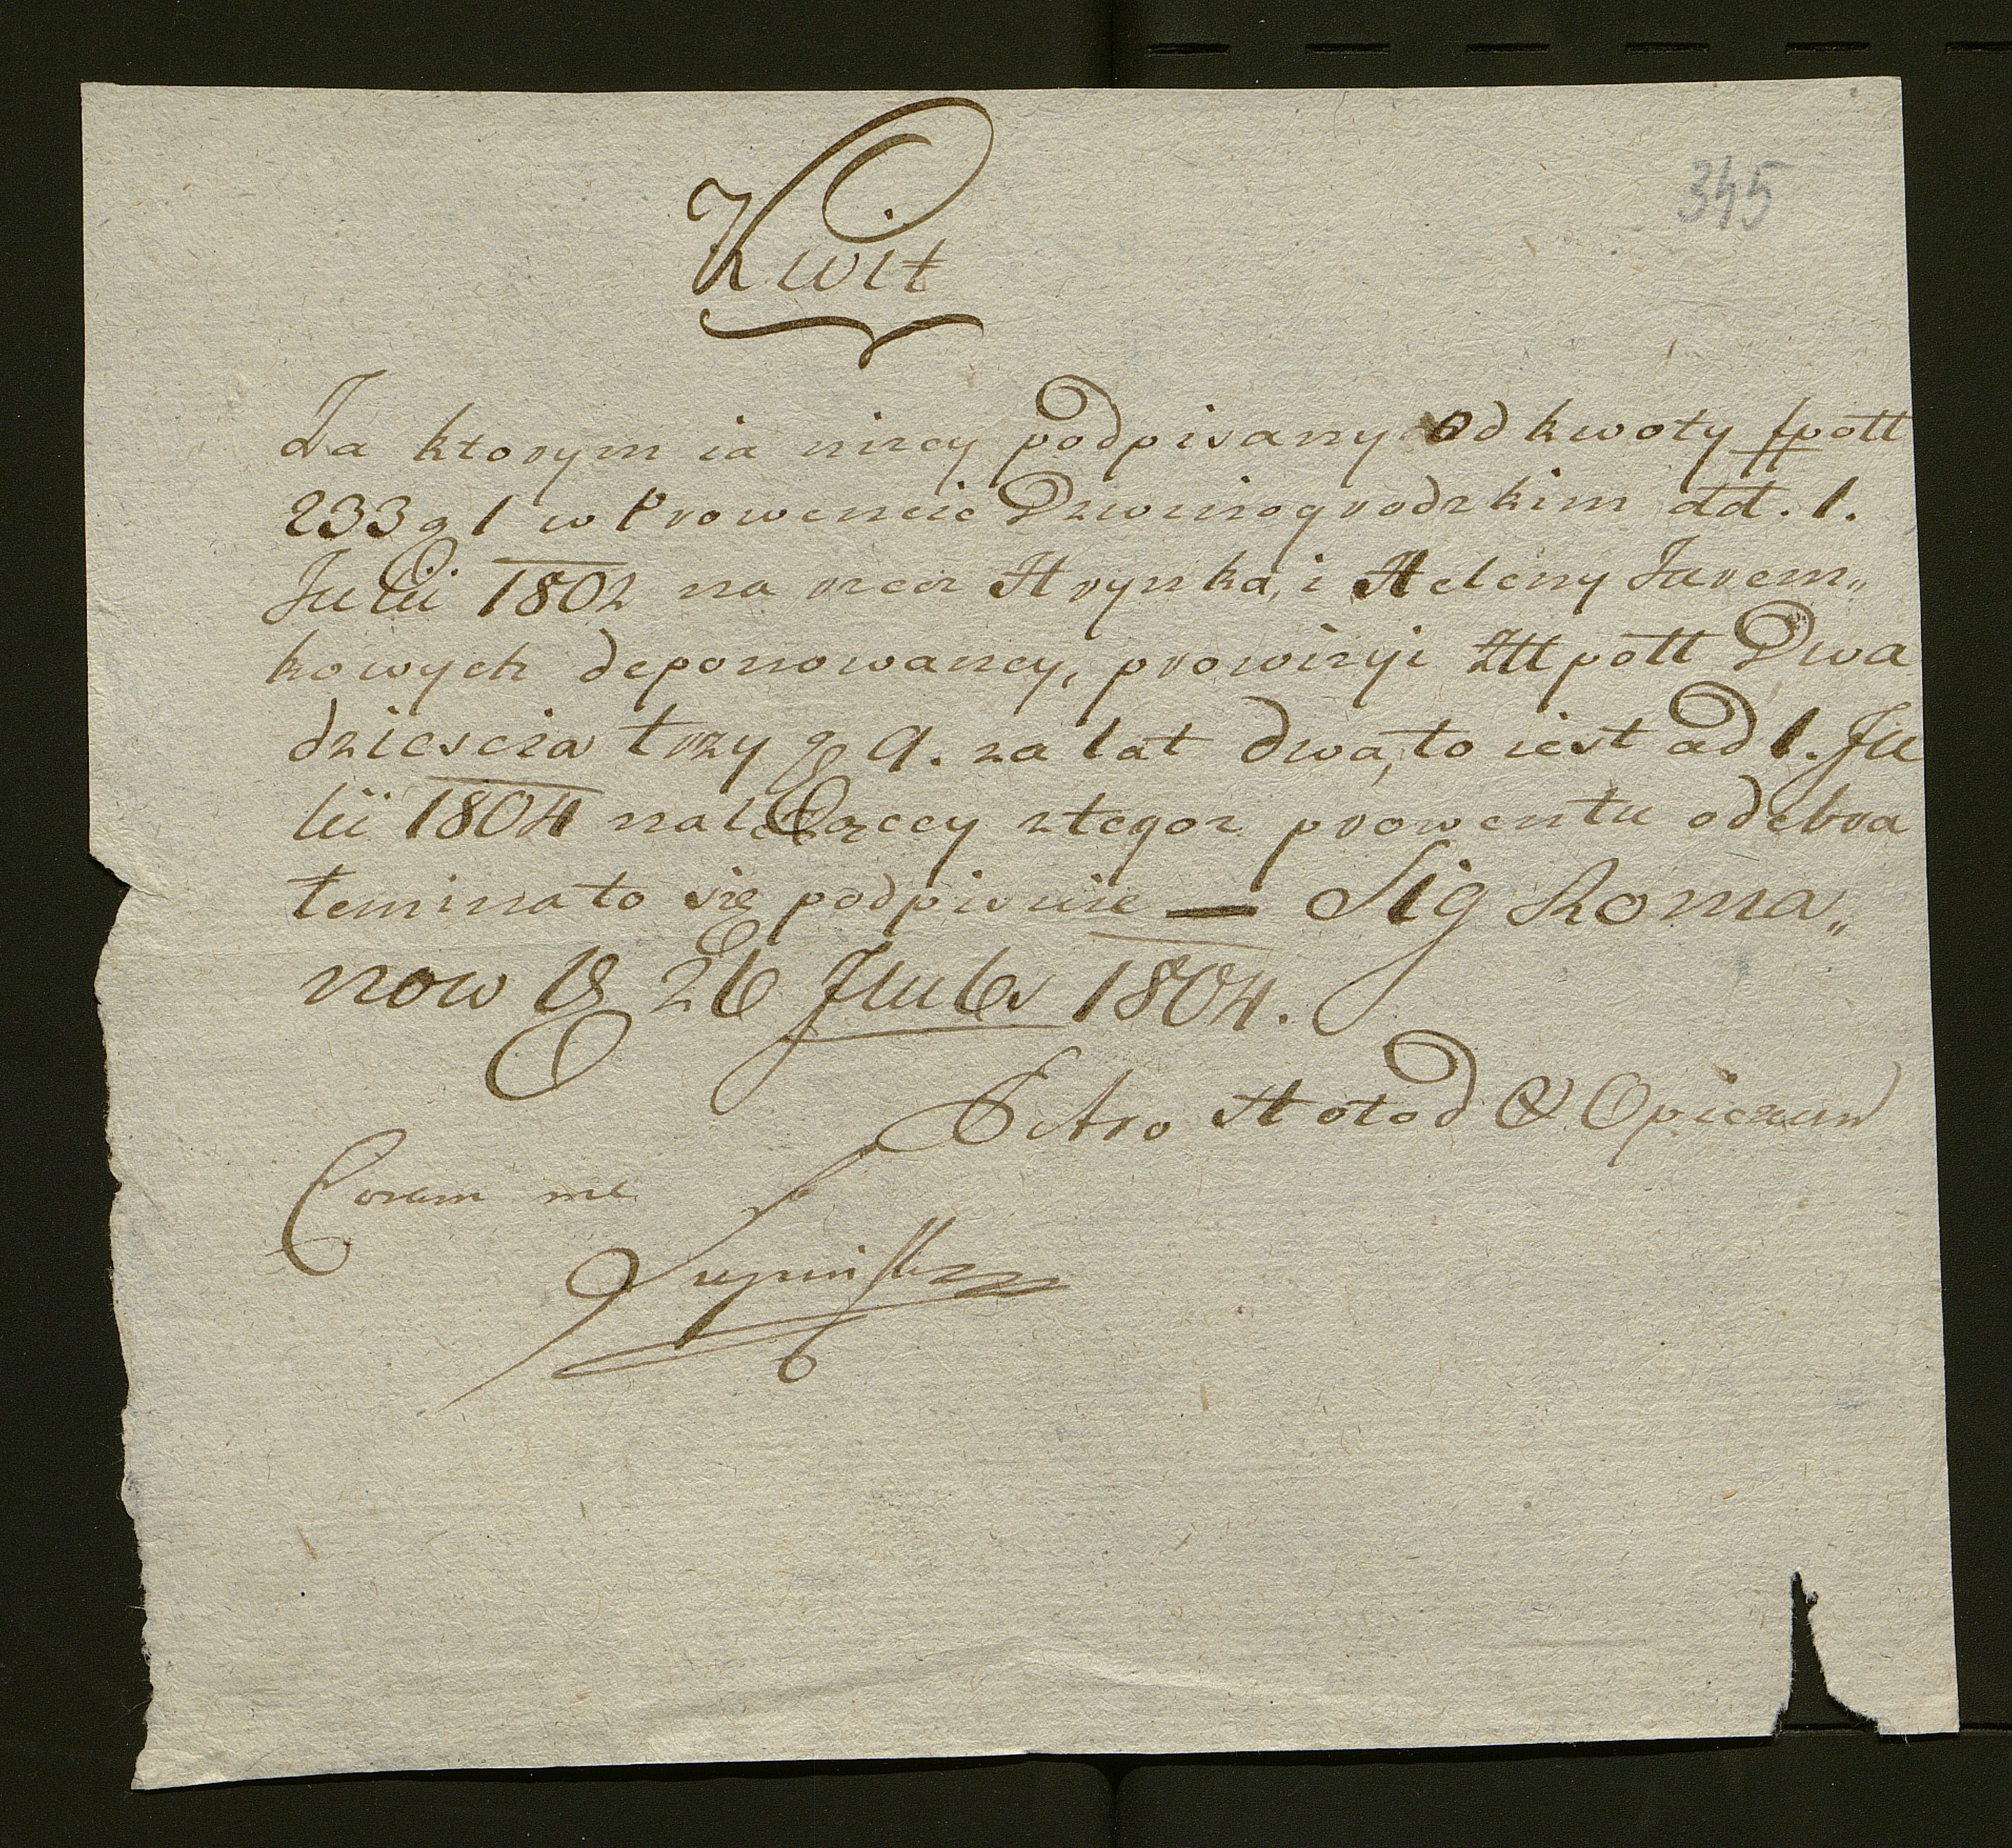 345
Kwit
Za ktorym ia nizey podpisany od kwoty fpoll
233 g 1 w Prowencie Dzwinogrodzkim dd. 1.
Julii 1802 na rzecz Hrynka, i Heleny Jarem„
kowych deponowaney, prowizyi Zll poll Dwa
dziescia trzy g 9. za lat dwa, to iest ad 1. Ju
lii 1804 należącey ztegoz prowentu odebra
łem i na to się podpisuie — Sig Roma„
now 26 1804.
Petro Hołod Opiekun
Coram me